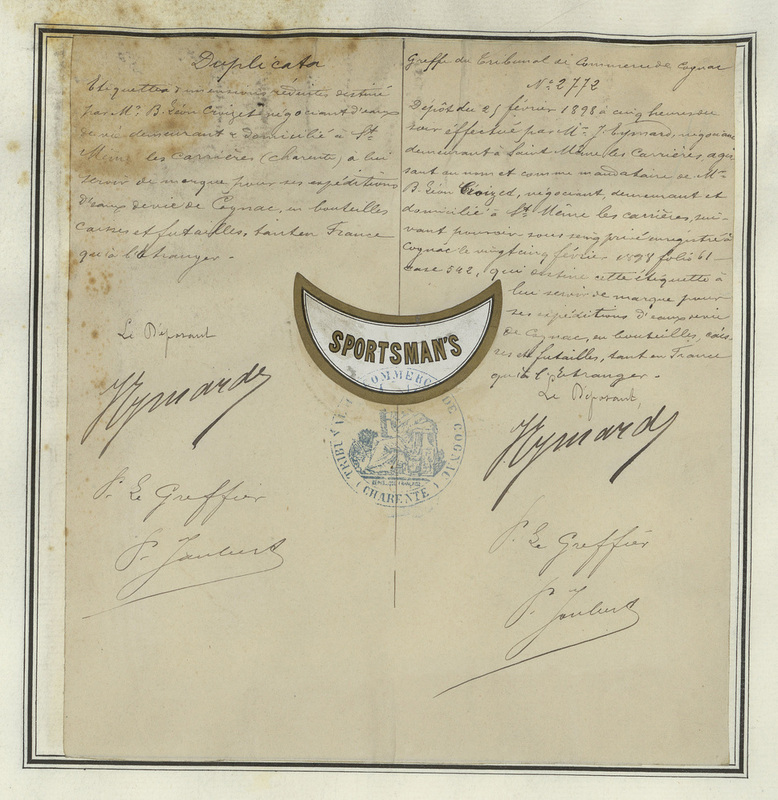 Duplicata
Etiquette dimensions réduites destiné
par Mr. B. Léon Croizet négociant d'eaux
de vie demeurant & domicilié à St.
Même les carrières (charente) a lui
servir de marque pour ses expéditions
d'eaux de vie de Cognac, en bouteilles
caisses et futailles, tant en France
qu'à l'étranger.
Le Déposant
Hymard
P. Le Greffier
P. Joubert
Greffe du Tribunal de Commerce de Cognac
No. 2772
Dépôt du 25 février 1898 à cinq heures du
soir effectué par Mr. J. négociant
demeurant à Saint Même les Carrières agis
sant au nom et comme mandataire de Mr
B. Léon Croizet, négociant demeurant et
domicilié à St. Même les carrières, sui-
vant pouvoir sous seing privé enregistré à
Cognac le vingt cinq février 1898 folio 61
case 542, qui destine cette étiquette à
lui servir de marque pour
ses expéditions d'eaux de vie
de Cognac, en bouteilles, cais-
ses et futailles, tant en France
qu'à l'Etranger.
Le Déposant,
Hymard
P. Le Greffier
P. Joubert
SPORTSMAN'S
TRIBUNAL DE COMMERCE DE COGNAC
(CHARENTE)